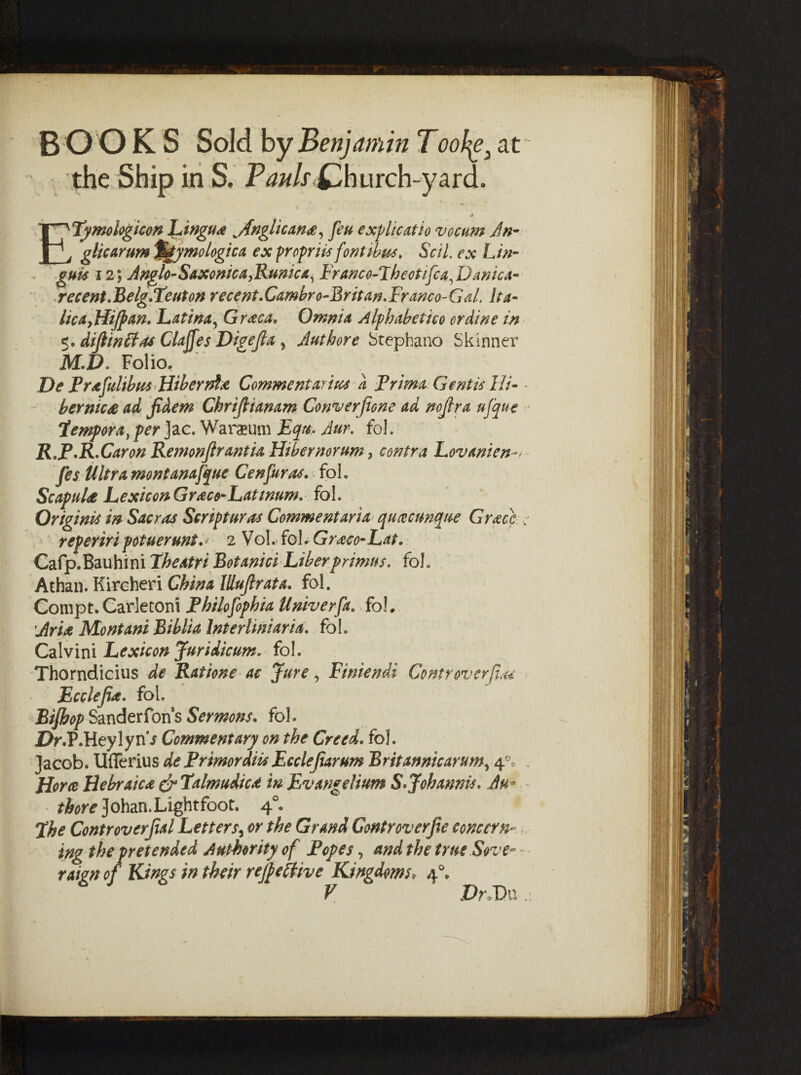 BOOKS Sold by Benjamin Tooke, at
the Ship in S. Pauls Church-yard.
ETymologicon Linguæ Anglicanæ, ſeu explicatio vocum An-
glicarum Etymologica ex propriis fontibus. Scil. ex Lin-
guis 12; Anglo-Saxonica, Runica, Franco-Theotiſca, Danica-
recent. Belg. Teuton recent. Cambro-Britan. Franco-Gal. Ita-
lica, Hiſpan. Latina, Græca. Omnia Alphabetico ordine in
5. diſtinctas Claſſes Digeſta, Authore Stephano Skinner
M.D. Folio.
De Præſulibus Hiberniæ Commentarius à Prima Gentis Hi-
bernicæ ad fidem Chriſtianam Converſione ad noſtra uſque
Tempora, per Jac. Waræum Equ. Aur. fol.
R.P.R. Caron Remonſtrantia Hibernorum, contra Lovanien-
ſes Ultra montanaſque Cenſuras. fol.
Scapulæ Lexicon Græco-Latinum. fol.
Originis in Sacras Scripturas Commentaria quæcunque Græcè
reperiri potuerunt. 2 Vol. fol. Græco-Lat.
Caſp. Bauhini Theatri Botanici Liber primus. fol.
Athan. Kircheri China Illuſtrata. fol.
Compt. Carletoni Philoſophia Univerſa. fol.
Ariæ Montani Biblia Interliniaria. fol.
Calvini Lexicon Juridicum. fol.
Thorndicius de Ratione ac Jure, Finiendi Controverſias
Eccleſiæ. fol.
Biſhop Sanderſon's Sermons. fol.
Dr. P. Heylyn's Commentary on the Creed. fol.
Jacob. Uſſerius de Primordiis Eccleſiarum Britannicarum, 4°.
Horæ Hebraicæ & Talmudicæ in Evangelium S. Johannis. Au-
thore Johan. Lightfoot. 4°.
The Controverſial Letters, or the Grand Controverſie concern-
ing the pretended Authority of Popes, and the true Sove-
raign of Kings in their reſpective Kingdoms. 4°.
V Dr. Du